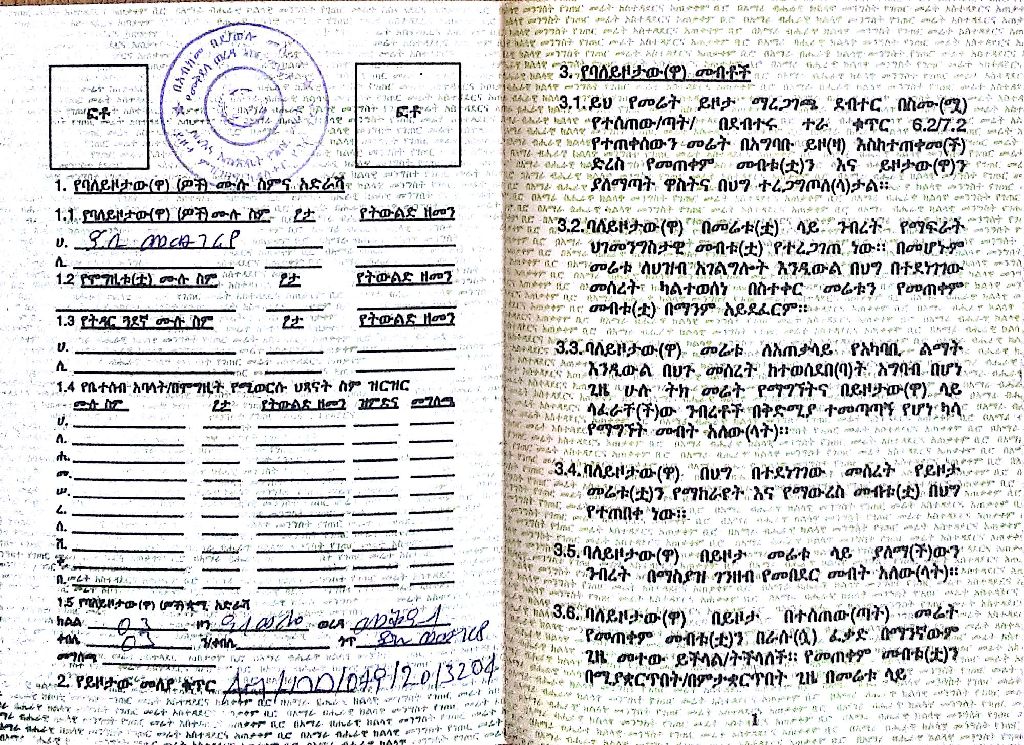 ፎቶ
ፎቶ
1. የባለይዞታው(ዋ) (ዎች) ሙሉ ስምና አድራሻ
1.1 የባለይዞታው(ዋ) (ዎች) ሙሉ ስም ፆታ የትውልድ ዘመን
ሀ.
ለ.
1.2 የሞግዚቱ(ቷ) ሙሉ ስም ፆታ የትውልድ ዘመን
1.3 የትዳር ጓደኛ ሙሉ ስም ፆታ የትውልድ ዘመን
ሀ.
ለ.
1.4 የቤተሰብ አባላት/በሞግዚት የሚወርሱ ህጻናት ስም ዝርዝር
ሙሉ ስም ፆታ የትውልድ ዘመን ዝምድና መግለጫ
ሀ.
ለ.
ሐ.
መ.
ሠ.
ረ.
ሰ.
ሸ.
ቀ.
በ.
1.5 የባለይዞታው(ዋ) (ዎች) ቋሚ አድራሻ
ክልል 03 ዞን ወረዳ
ቀበሌ 03 ንዑስ ቀበሌ ጎጥ
መግለጫ
2. የይዞታው መለያ ቁጥር
3. የባለይዞታው(ዋ) መብቶች
3.1. ይህ የመሬት ይዞታ ማረጋገጫ ደብተር በስሙ(ሟ)
የተሰጠው/ጣት/ በደብተሩ ተራ ቁጥር 6.2/7.2
የተጠቀሰውን መሬት በአግባቡ ይዞ(ዛ) እስከተጠቀመ(ች)
ድረስ የመጠቀም መብቱ(ቷ)ን እና ይዞታው(ዋ)ን
ያለማጣት ዋስትና በህግ ተረጋግጦለ(ላ)ታል።
3.2. ባለይዞታው(ዋ) በመሬቱ(ቷ) ላይ ንብረት የማፍራት
ህገመንግስታዊ መብቱ(ቷ) የተረጋገጠ ነው። በመሆኑም
መሬቱ ለህዝብ አገልግሎት እንዲውል በህግ በተደነገገው
መሰረት ካልተወሰነ በስተቀር መሬቱን የመጠቀም
መብቱ(ቷ) በማንም አይደፈርም።
3.3. ባለይዞታው(ዋ) መሬቱ ለአጠቃላይ የአካባቢ ልማት
እንዲውል በህጉ መሰረት ከተወሰደበ(ባ)ት አግባብ በሆነ
ጊዜ ሁሉ ትክ መሬት የማግኘትና በይዞታው(ዋ) ላይ
ላፈራቸ(ች)ው ንብረቶች በቅድሚያ ተመጣጣኝ የሆነ ካሳ
የማግኘት መብት አለው(ላት)።
3.4. ባለይዞታው(ዋ) በህግ በተደነገገው መሰረት የይዞታ
መሬቱ(ቷ)ን የማከራየት እና የማውረስ መብቱ(ቷ) በህግ
የተጠበቀ ነው።
3.5. ባለይዞታው(ዋ) በይዞታ መሬቱ ላይ ያለማ(ች)ውን
ንብረት በማስያዝ ገንዘብ የመበደር መብት አለው(ላት)።
3.6. ባለይዞታው(ዋ) በይዞታ በተሰጠው(ጣት) መሬት
የመጠቀም መብቱ(ቷ)ን በራሱ(ሷ) ፈቃድ በማንኛውም
ጊዜ መተው ይችላል/ትችላለች። የመጠቀም መብቱ(ቷ)ን
በሚያቋርጥበት/በምታቋርጥበት ጊዜ በመሬቱ ላይ
1